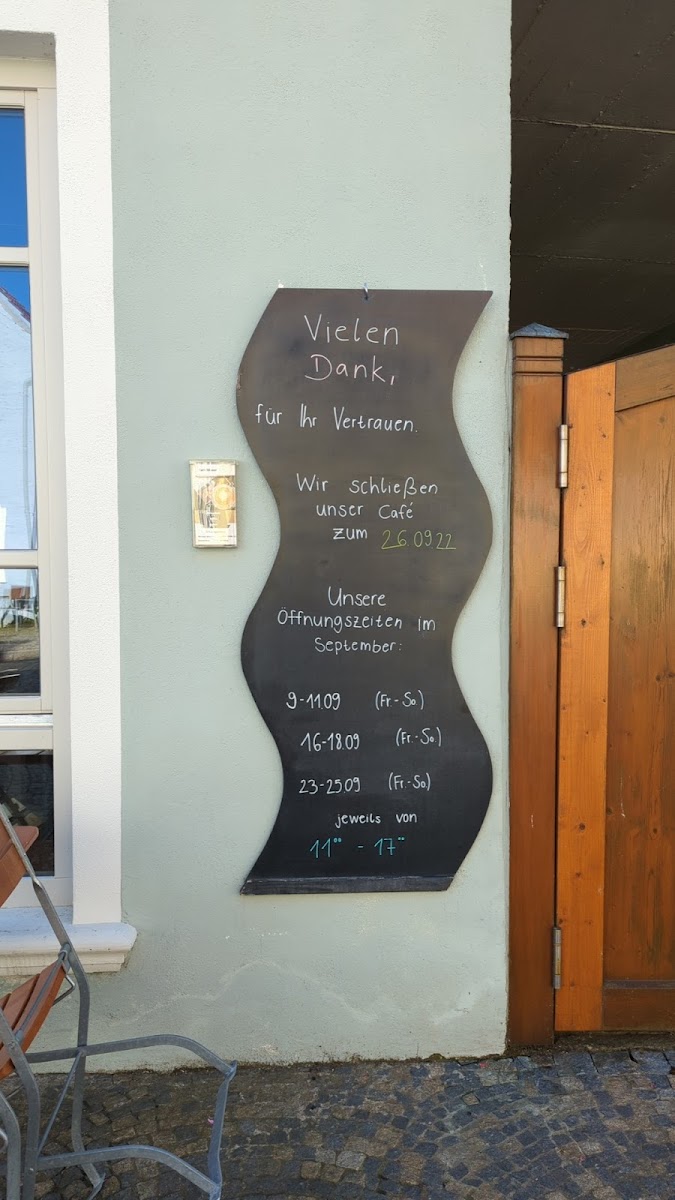 Vielen
Dank,
für Ihr Vertrauen.
Wir schließen
unser Café
zum 26.09.22
Unsere
Öffnungszeiten im
September:
9-11.09 (Fr.-So.)
16-18.09 (Fr.-So.)
23-25.09 (Fr.-So.)
jeweils von
11⁰⁰ - 17⁰⁰